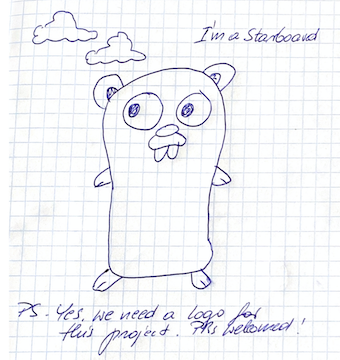 I'm a Starboard
PS - Yes, we need a logo for
this project. PRs welcomed!